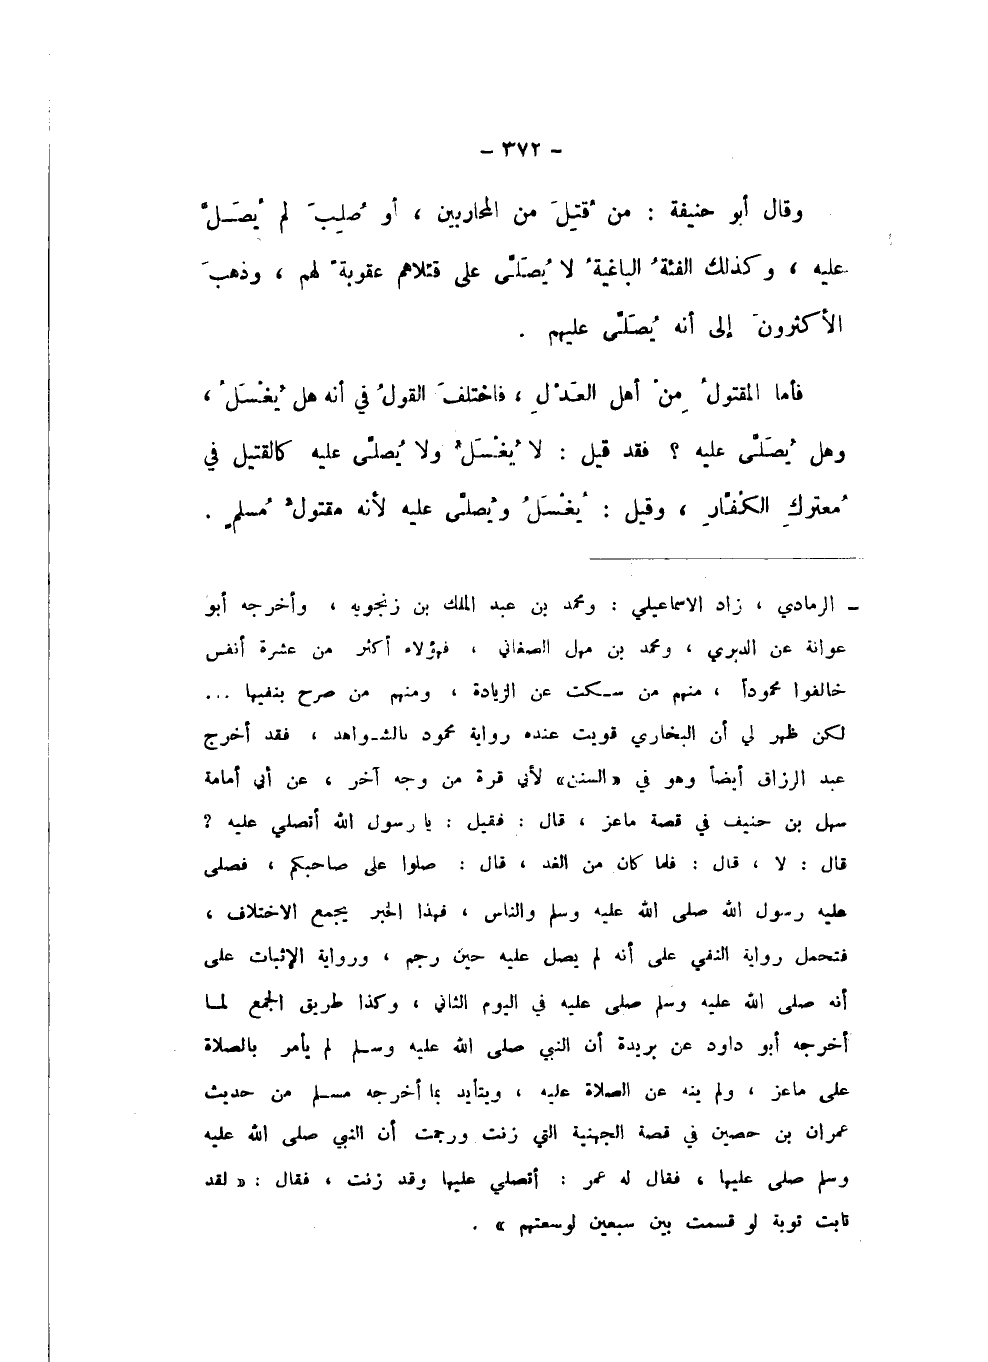 - ٣٧٢ -
وقال أبو حنيفة : من قُتِلَ من المحاربين ، أو صُلِبَ لم يُصَلَّ
عليه ، وكذلك الفئةُ الباغيةُ لا يُصَلَّى على قتلاهم عقوبةً لهم ، وذهبَ
الأكثرونَ إلى أنه يُصَلَّى عليهم .
فأما المقتولُ مِنْ أهل العَدْلِ ، فاختلفَ القولُ في أنه هل يُغْسَلُ ،
وهل يُصَلَّى عليه ؟ فقد قيل : لا يُغْسَلُ ولا يُصلَّى عليه كالقتيل في
مُعتركِ الكُفَّارِ ، وقيل : يُغْسَلُ ويُصلَّى عليه لأنه مقتولٌ مُسلمٍ .
ـ الرمادي ، زاد الاسماعيلي : ومحمد بن عبد الملك بن زنجويه ، وأخرجه أبو
عوانة عن الدبري ، ومحمد بن مهل الصغاني ، فهؤلاء أكثر من عشرة أنفس
خالفوا محموداً ، منهم من سكت عن الزيادة ، ومنهم من صرح بنفيها ...
لكن ظهر لي أن البخاري قويت عنده رواية محمود بالشواهد ، فقد أخرج
عبد الرزاق أيضاً وهو في «السنن» لأبي قرة من وجه آخر ، عن أبي أمامة
سهل بن حنيف في قصة ماعز ، قال : فقيل : يا رسول الله أتصلي عليه ؟
قال : لا ، قال : فلما كان من الغد ، قال : صلوا على صاحبكم ، فصلى
عليه رسول الله صلى الله عليه وسلم والناس ، فهذا الخبر يجمع الاختلاف ،
فتحمل رواية النفي على أنه لم يصل عليه حين رجم ، ورواية الإثبات على
أنه صلى الله عليه وسلم صلى عليه في اليوم الثاني ، وكذا طريق الجمع لما
أخرجه أبو داود عن بريدة أن النبي صلى الله عليه وسلم لم يأمر بالصلاة
على ماعز ، ولم ينه عن الصلاة عليه ، ويتأيد بما أخرجه مسلم من حديث
عمران بن حصين في قصة الجهنية التي زنت ورجمت أن النبي صلى الله عليه
وسلم صلى عليها ، فقال له عمر : أتصلي عليها وقد زنت ، فقال : « لقد
تابت توبة لو قسمت بين سبعين لوسعتهم » .